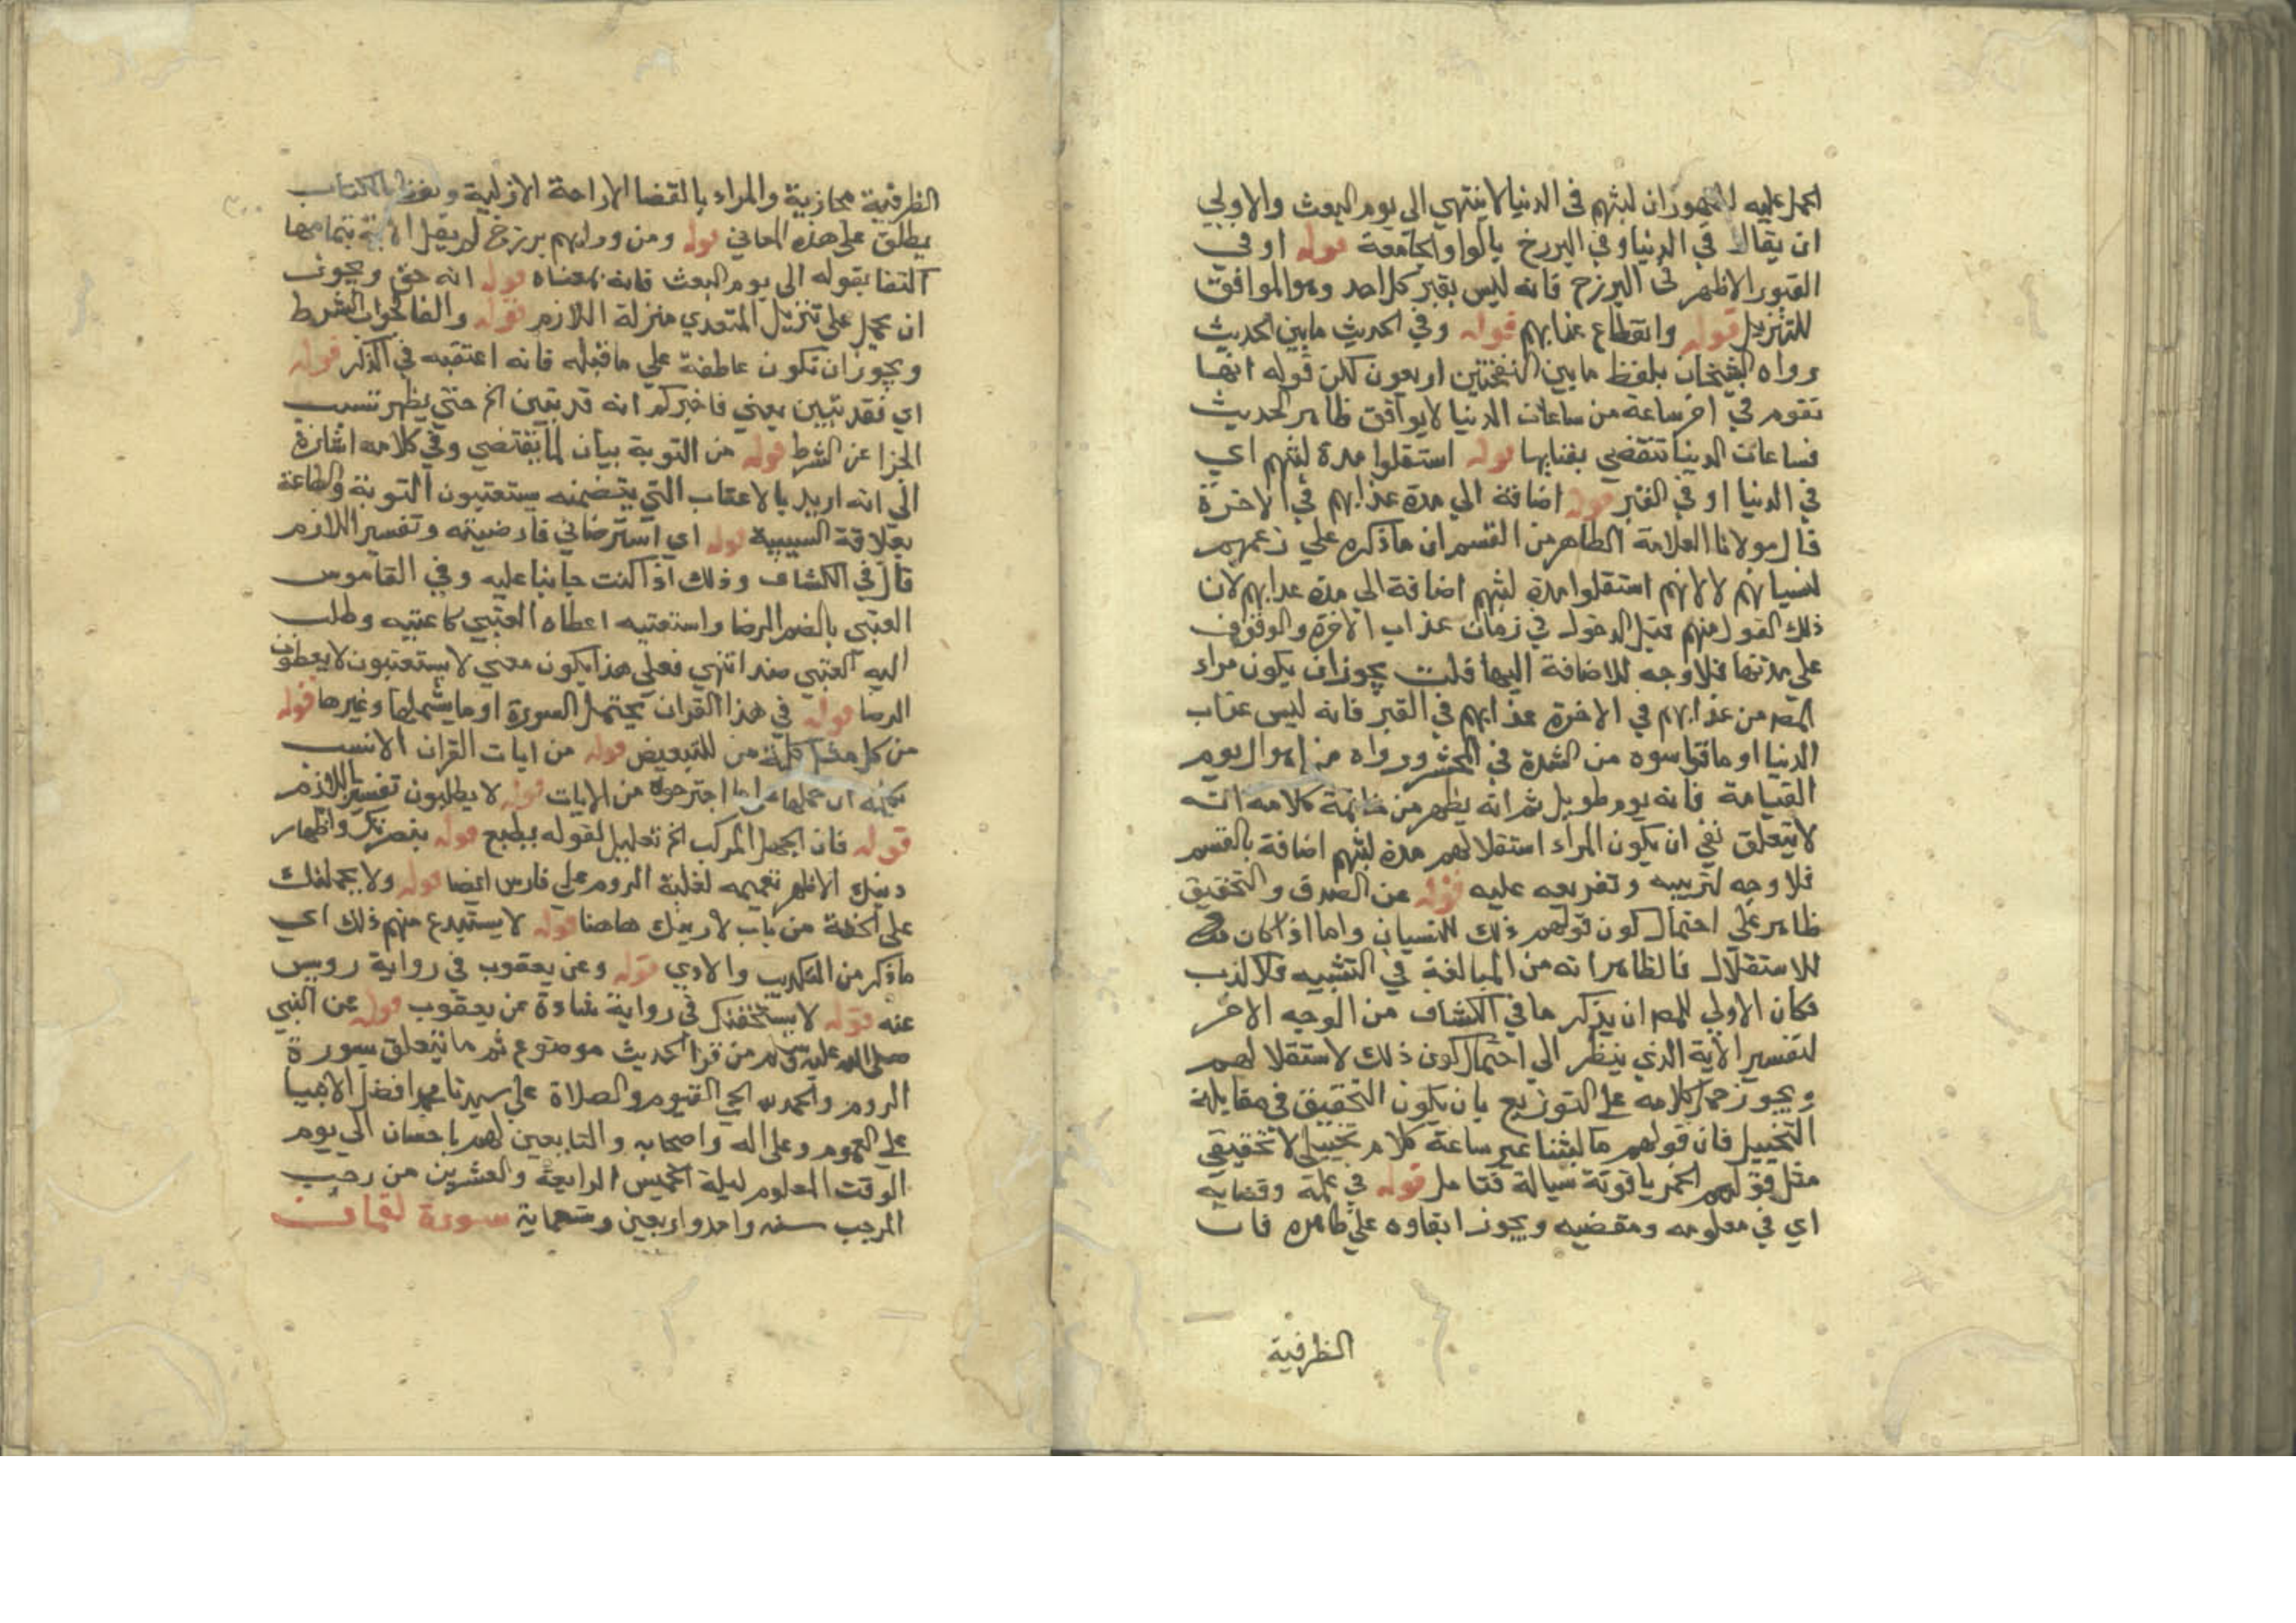 الحمل عليه لظهور ان لبثهم في الدنيا لا ينتهي الي يوم البعث والاولي
ان يقال في الدنيا وفي البرزخ بالواو الجامعة قوله او في
القبور الاظهر في البرزخ فانه ليس بقبر كل احد وهو الموافق
للتنزيل قوله وانقطاع عذابهم قوله وفي الحديث ما بين الحديث
رواه الشيخان بلفظ ما بين النفختين اربعون لكن قوله انها
تقوم في اخر ساعة من ساعات الدنيا لا يوافق ظاهر الحديث
فساعات الدنيا تنقضي بفنايها قوله استقلوا مدة لبثهم اي
في الدنيا او في القبر قوله اضافة الي مدة عذابهم في الاخرة
قال مولانا العلامة الظاهر من القسم ان ما ذكره علي زعمهم
لنسيانهم لا لانهم استقلوا مدة لبثهم اضافة الي مدة عذابهم لان
ذلك القول منهم قبل الدخول في زمان عذاب الاخرة والوقوف
علي مدتها فلا وجه للاضافة اليها قلت يجوز ان يكون مراد
المص من عذابهم في الاخرة عذابهم في القبر فانه ليس عذاب
الدنيا او ما قاسوه من الشدة في المحشر ورواه من اهوال يوم
القيامة فانه يوم طويل ثم انه يظهر من خاتمة كلامه انه
لا يتعلق نفي ان يكون المراد استقلالهم مدة لبثهم اضافة بالقسم
فلا وجه لترتيبه وتفريعه عليه قوله عن الصدق والتحقيق
ظاهر علي احتمال كون قولهم ذلك للنسيان واما اذا كان
للاستقلال فالظاهر انه من المبالغة في التشبيه فلا كذب
فكان الاولي للمص ان يذكر ما في الكشاف من الوجه الاخر
لتفسير الاية الذي ينظر الي احتمال كون ذلك لاستقلالهم
ويجوز حمل كلامه علي التوزيع بان يكون التحقيق في مقابلة
التخييل فان قولهم ما لبثنا غير ساعة كلام تخييلي لا تحقيقي
مثل قولهم الخمر ياقوتة سيالة فتامل قوله في علمه وقضايه
اي في معلومه ومقضيه ويجوز ابقاوه علي ظاهره فان
الظرفية
الظرفية مجازية والمراد بالقضا الارادة الازلية ولفظ الكتاب
يطلق علي هذه المعاني قوله ومن ورايهم برزخ لم ينقل الاية بتمامها
اكتفا بقوله الي يوم البعث فانه بمعناه قوله انه حق ويجوز
ان يحمل علي تنزيل المتعدي منزلة اللازم قوله والفا لجواب الشرط
ويجوز ان تكون عاطفة علي ما قبله فانه اعتقبه في الذكر قوله
اي فقد تبين يعني فاخبركم انه قد تبين الخ حتي يظهر تسبب
الجزا عن الشرط قوله من التوبة بيان لما يقتضي وفي كلامه اشارة
الي انه اريد بالاعتاب التي يتضمنه يستعتبون التوبة والطاعة
بعلاقة السببية قوله اي استرضاني فارضيته وتفسير اللازم
قال في الكشاف وذلك اذا كنت جانيا عليه وفي القاموس
العتبي بالضم الرضا واستعتبه اعطاه العتبي كاعتبه وطلب
اليه العتبي ضد انتهي فعلي هذا يكون معني لا يستعتبون لا يعطون
الرضا قوله في هذا القران يحتمل السورة او ما يشملها وغيرها قوله
من كل مثل كلمة من للتبعيض قوله من ايات القران الانسب
من الايات قوله لا يطلبون تفسير باللازم
قوله فان الجهل المركب الخ تعليل لقوله يطبع قوله بنصرتك واظهار
دينك الاظهر تعميمه لغلبة الروم علي فارس ايضا قوله ولا يحملنك
علي الخفة من باب لا ارينك هاهنا قوله لا يستبدع منهم ذلك اي
ما ذكر من التكذيب والاذي قوله وعن يعقوب في رواية رويس
عنه قوله لا يستخفنك في رواية شاذة عن يعقوب قوله عن النبي
صلي الله عليه وسلم من قرا الحديث موضوع ثم ما يتعلق بسورة
الروم والحمد لله الحي القيوم والصلاة علي سيدنا محمد افضل الانبيا
علي العموم وعلي اله واصحابه والتابعين لهم باحسان الي يوم
الوقت المعلوم ليلة الخميس الرابعة والعشرين من رجب
المرجب سنه واحد واربعين وتسعماية سورة لقمان